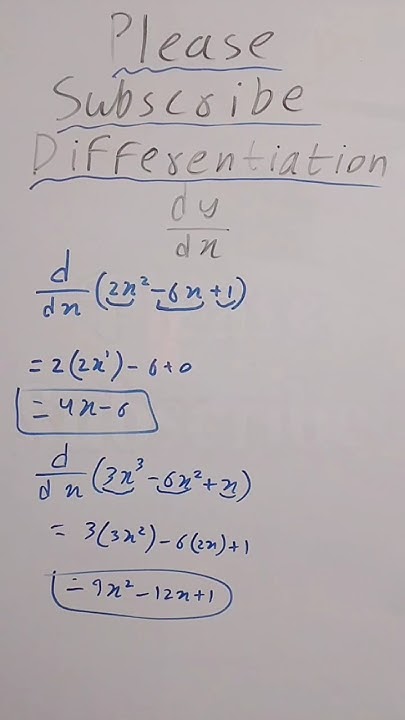 Please
Subscribe
Differentiation
dy
dx
d
dx (2x² - 6x + 1)
= 2(2x¹) - 6 + 0
= 4x - 6
d
dx (3x³ - 6x² + x)
= 3(3x²) - 6(2x) + 1
= 9x² - 12x + 1